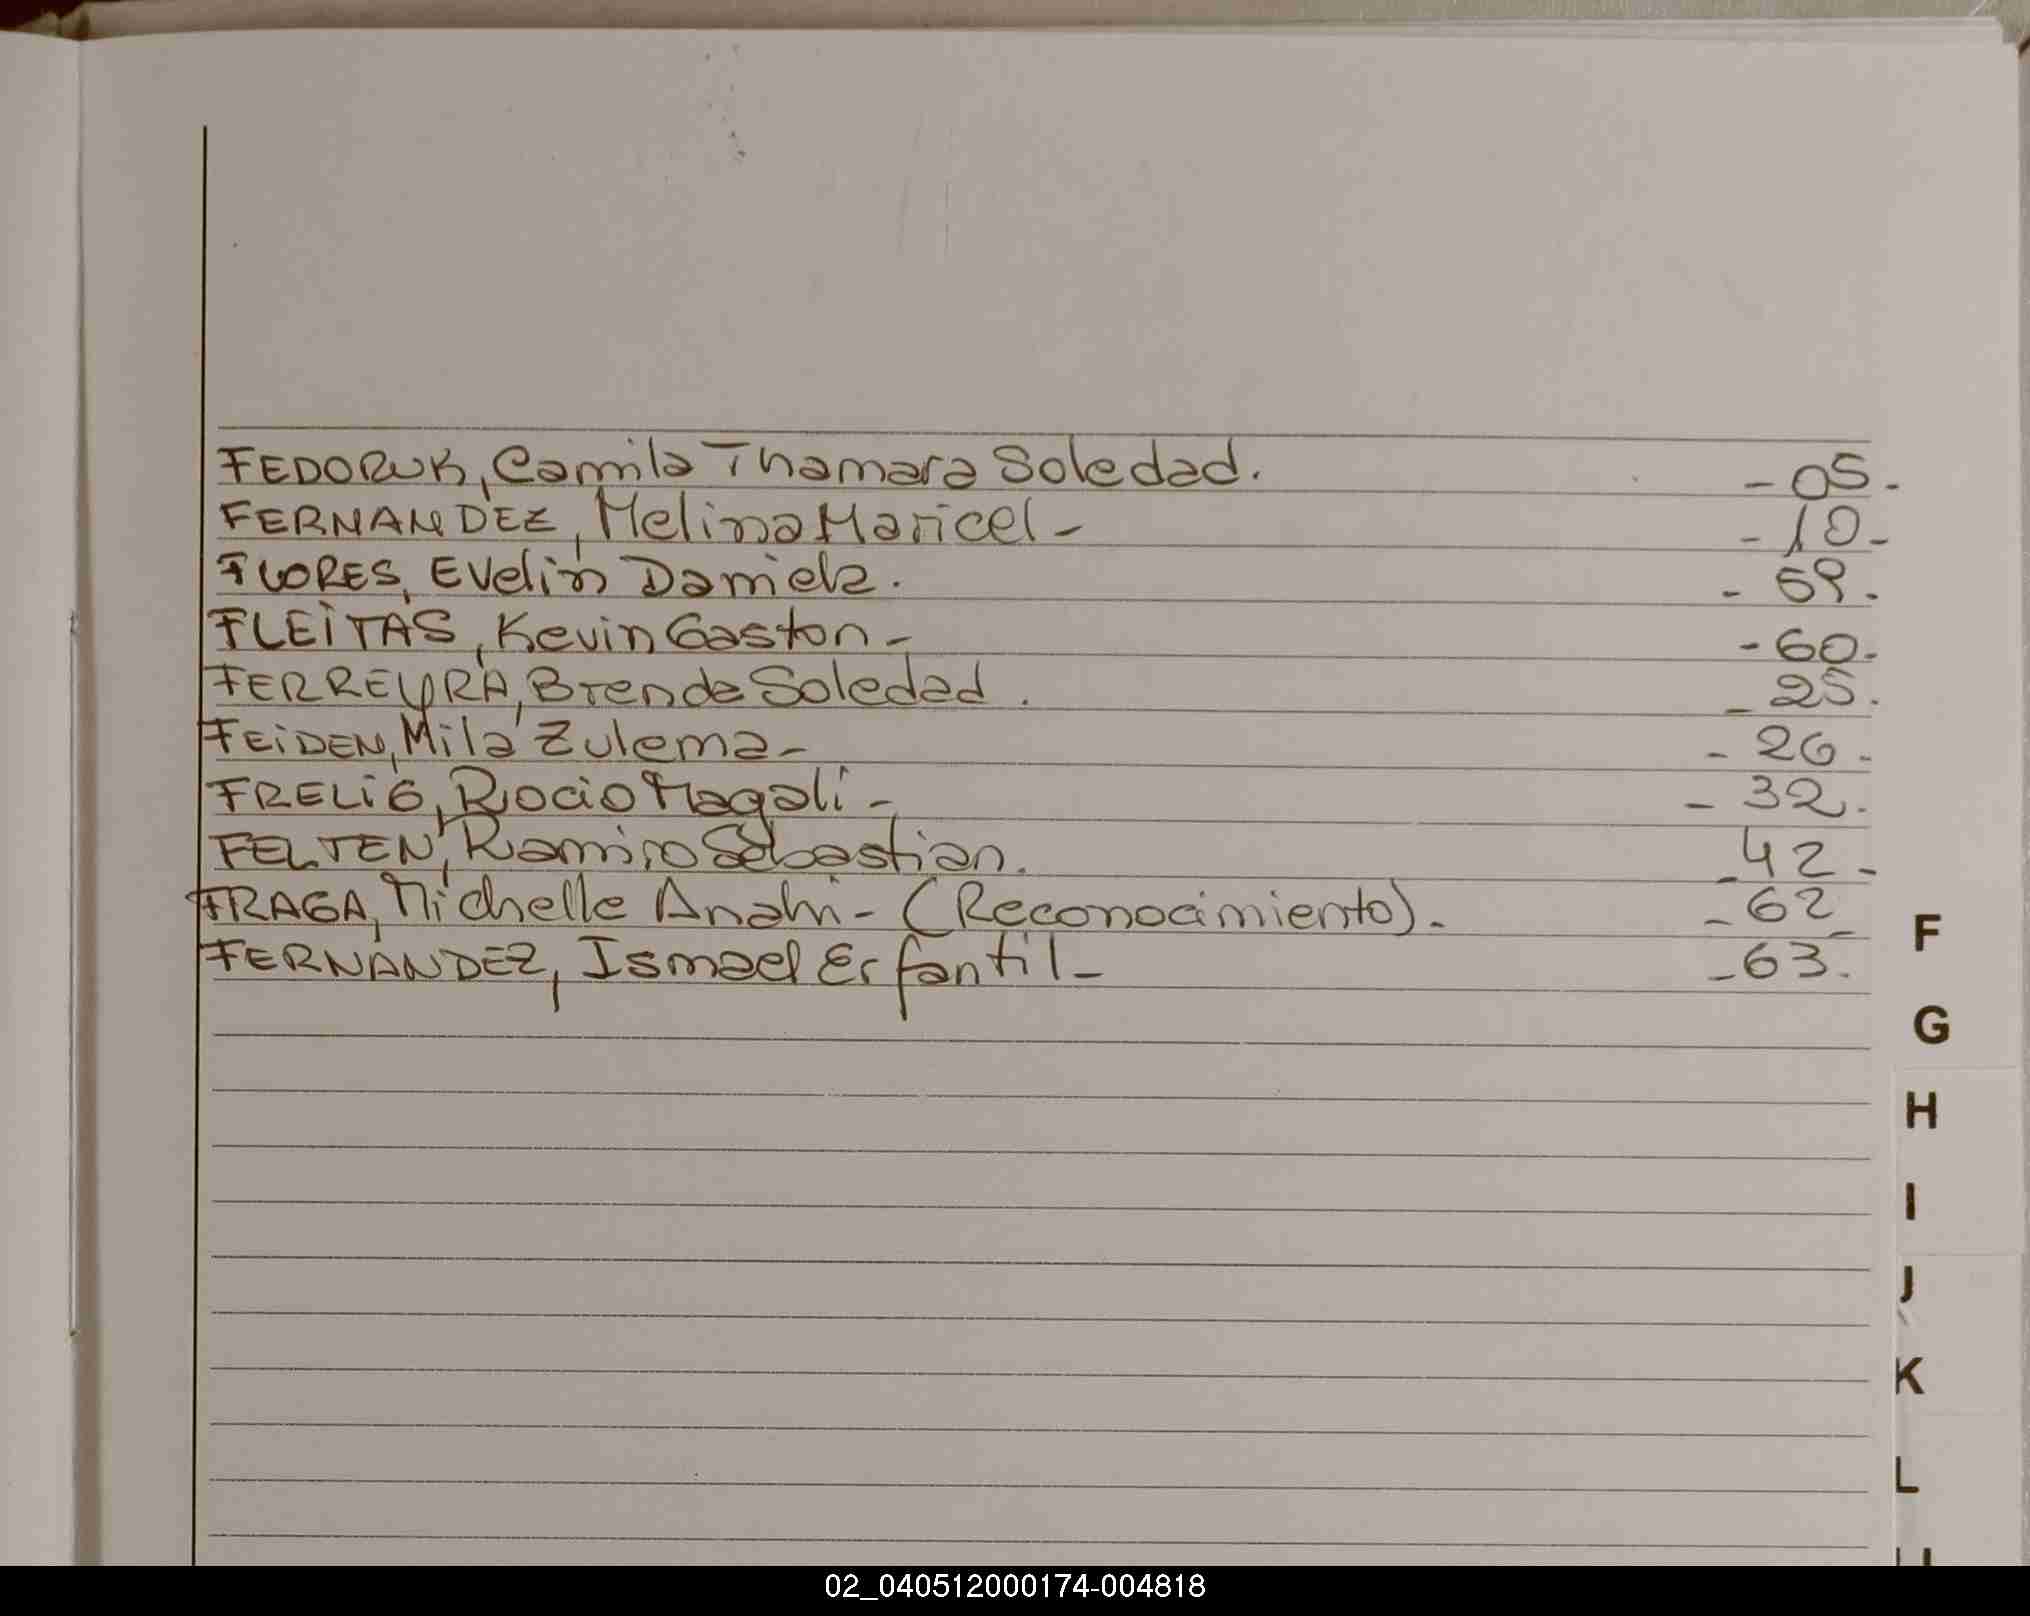 FEDORUK, Camila Thamara Soledad. - 05.-
FERNANDEZ, Melina Maricel - - 10.-
FLORES, Evelin Daniela. - 59.
FLEiTAS, Kevin Gaston - - 60.-
FERREYRA, Brenda Soledad. - 25.
FEiDEN, Mila Zulema - - 26.
FRELiG, Rocio Magali - - 32.
FELTEN, Ramiro Sebastian. - 42.-
FRAGA, Michelle Anahi - (Reconocimiento). - 62 -
FERNANDEZ, Ismael Erfantil - - 63.
F
G
H
I
J
K
L
02_040512000174-004818